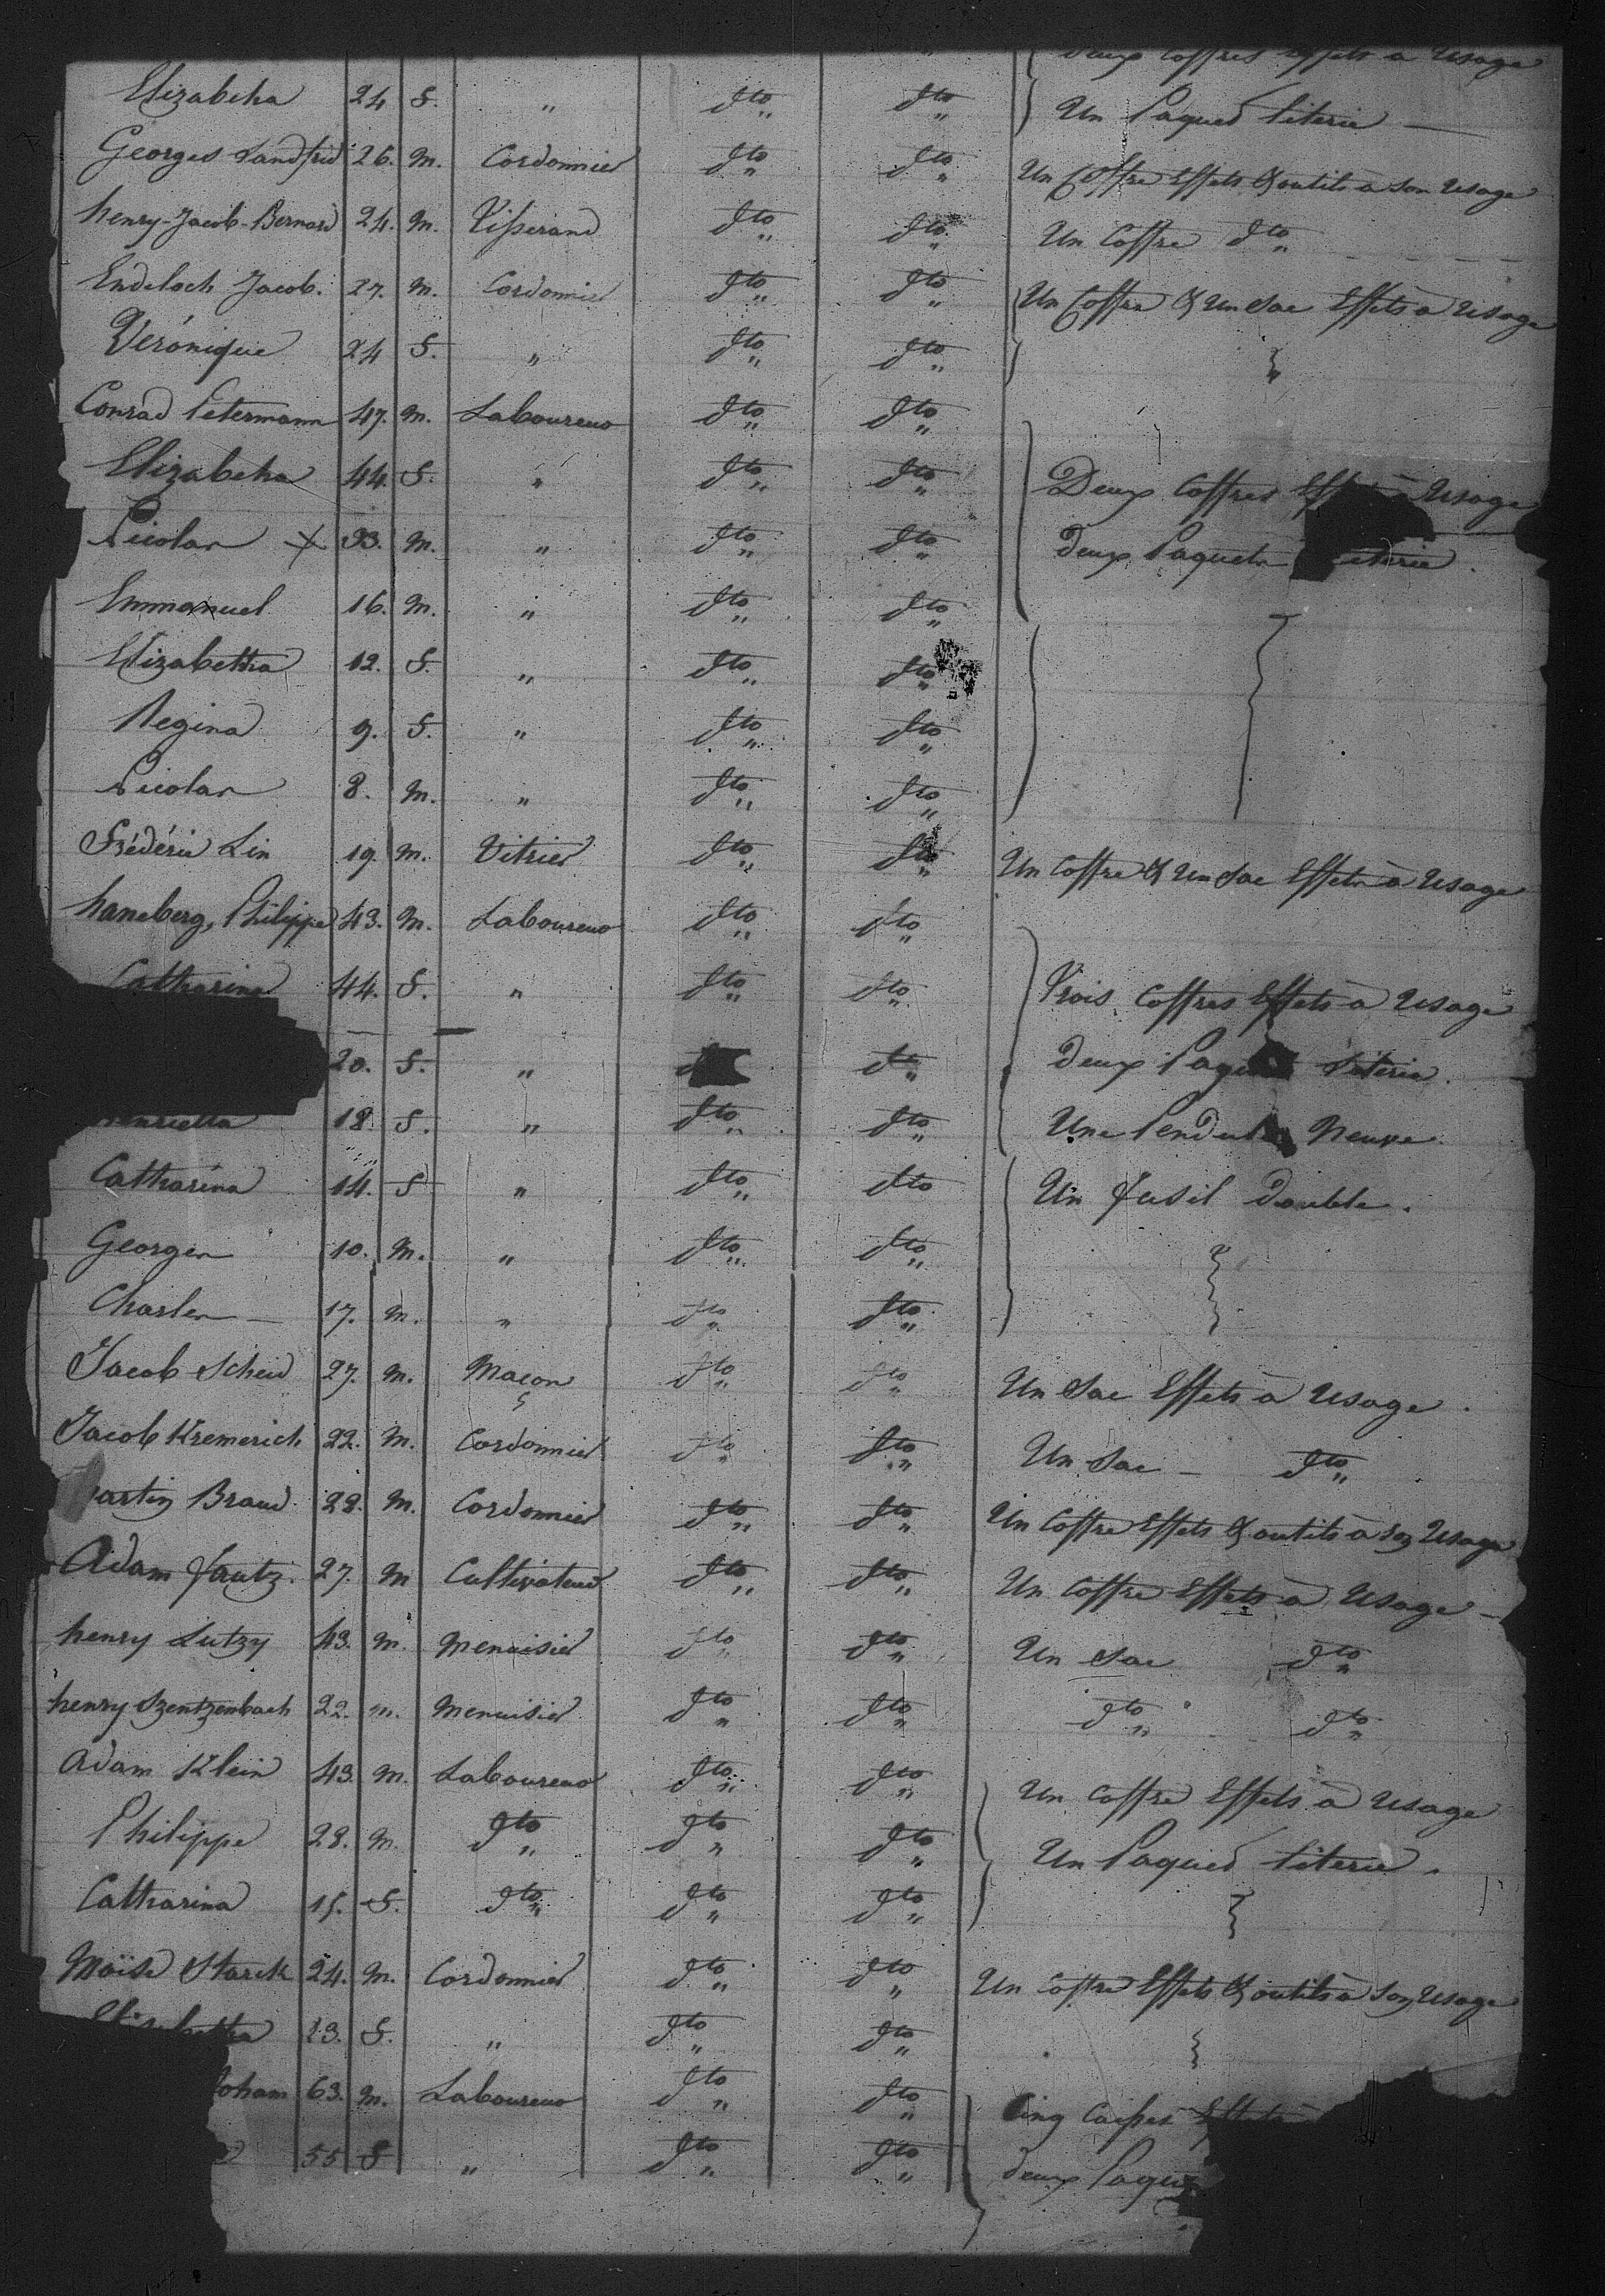 Deux Coffres Effets à Usage
Elizabetha 24 F. " dto " dto " Un Paquet Literie —
Georges Landfrid 26. M. Cordonnier dto " dto " Un Coffre Effets & outils à son Usage
henry-Jacob-Bernard 24. M. Tisserand dto " dto " Un Coffre dto "
Endeloch Jacob. 27. M. Cordonnier dto " dto " Un Coffre & Un Sac Effets à Usage
Véronique 24 F. " dto " dto " "
Conrad Petermann 47. M. Laboureur dto " dto "
Elizabetha 44. F. " dto " dto " Deux Coffres Eff à Usage
Nicolas M. " dto " dto " Deux Paquets iterie.
Emmanuel 16. M. " dto " dto "
Elizabetha 12. F. " dto " dto "
Regina 9. F. " dto " dto "
Nicolas 8. M. " dto " dto "
Frédéric Lin 19. M. Vitrier dto " dto " Un Coffre & Un Sac Effets à Usage
haneberg, Philippe 43. M. Laboureur dto " dto "
Catharina 44. F. " dto " dto " Trois Coffres Effets à Usage
20. F. " d dto " Deux Paq Literie.
18. F. " dto " dto " Une Pendule Neuve.
Catharina 14. F " dto " dto Un fusil double.
Georges 10. M. " dto " dto "
Charles — 17. M. " dto " dto "
Jacob Scheid 27. M. Maçon dto " dto " Un Sac Effets à Usage.
Jacob Kremerich 22. M. Cordonnier dto " dto " Un Sac — dto "
artin Braud. 28. M. Cordonnier dto " dto " Un Coffre Effets & outils à son Usage
Adam Jautz. 27. M Cultivateur dto " dto " Un Coffre Effets à Usage —
henry Lutzy 43. M. Menuisier dto " dto " Un Sac dto "
henry Szentzenbach 22. M. Menuisier dto " dto " dto " dto "
Adam Klein 43. M. Laboureur dto " dto " Un Coffre Effets à Usage
Philippe 28. M. dto " dto " dto " Un Paquet Literie.
Catharina 15. F. dto " dto " dto "
Moïse Starck 24. M. Cordonnier dto " dto " Un Coffre Effets & outils à son Usage
Elisabetha F. " dto " dto "
oham 63. M. Laboureur dto " dto " Cinq Caisses Effets
55 F " dto " dto " deux Paqu